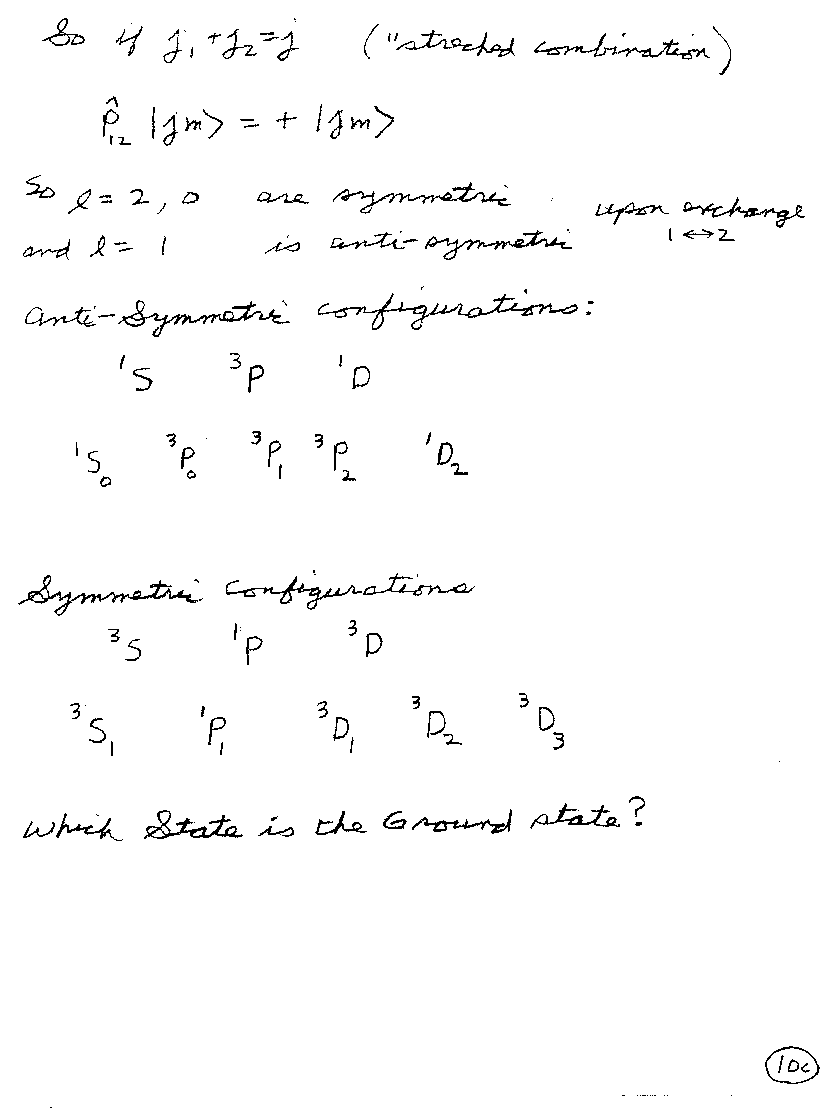 So if j₁ + j₂ = j ("streched combination)
P̂₁₂ |jm> = + |jm>
So l = 2, 0 are symmetric upon exchange
and l = 1 is anti-symmetric 1 ↔ 2
Anti-Symmetric configurations:
¹S ³P ¹D
¹S₀ ³P₀ ³P₁ ³P₂ ¹D₂
Symmetric Configurations
³S ¹P ³D
³S₁ ¹P₁ ³D₁ ³D₂ ³D₃
Which State is the Ground state?
10c